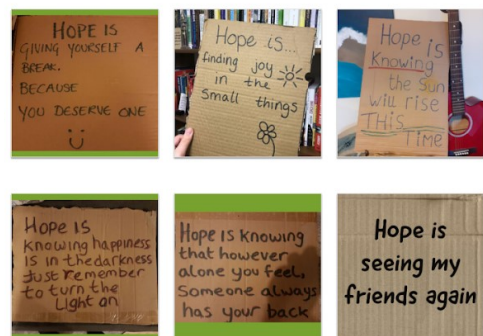 HOPE IS
GIVING YOURSELF A
BREAK.
BECAUSE
YOU DESERVE ONE
Hope is...
finding joy
in the
small things
Hope is
Knowing
the Sun
will rise
THiS
TIME
Hope IS
knowing happiness
is in the darkness
Just remember
to turn the
Light on
Hope IS knowing
that however
alone you feel,
Someone always
has your back
Hope is
seeing my
friends again